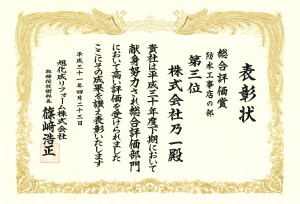 表彰状
総合評価賞
防水工事店の部
第三位
株式会社乃一殿
貴社は平成三十年度下期において
献身努力され総合評価部門
において高い評価を受けられました
ここにその成果を讃え表彰いたします
平成三十一年四月二十三日
旭化成リフォーム株式会社
取締役技術部長
篠崎浩正